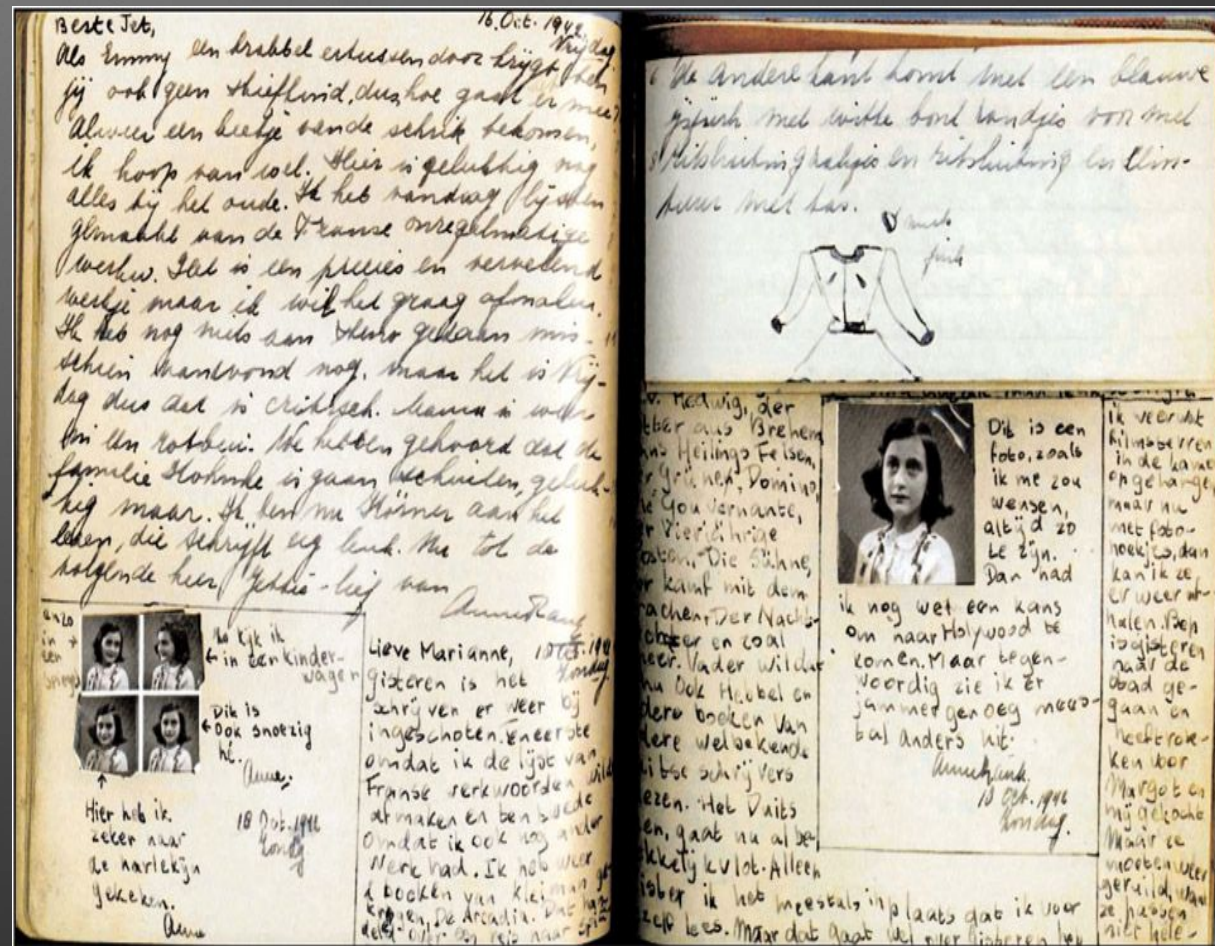 Beste Jet,
16. Oct. 1942.
Vrijdag
Als Emmy een krabbel ertussendoor krijgt, ben
jij ook geen stiefkind, dus, hoe gaat er mee?
Alweer een beetje van de schrik bekomen,
ik hoop van wel. Hier is gelukkig nog
alles bij het oude. Ik heb vandaag lijsten
gemaakt van de Franse onregelmatige
werkw. Dat is een precies en vervelend
werkje maar ik wil het graag afmaken.
Ik heb nog niets aan steno gedaan mis-
schien vanavond nog, maar het is Vrij-
dag dus dat is critisch. Mama is weer
in een rotbui. We hebben gehoord dat de
familie is gaan schuilen, geluk-
kig maar. Ik ben nu Körner aan het
lezen, die schrijft erg leuk. Nu tot de
volgende keer Jettie-lief van
Anne Frank
enzo
in
een
Zo kijk ik
in een kinder-
wagen
Dit is
ook snoezig
hè.
Anne.
18 Oct. 1942
Zondag
Hier heb ik
zeker naar
de harlekijn
gekeken.
Anne
Lieve Marianne,
18 Oct. 1942
Zondag.
gisteren is het
schrijven er weer bij
ingeschoten. Ten eerste
omdat ik de lijst van
Franse werkwoorden wilde
afmaken en ten tweede
omdat ik ook nog ander
werk had. Ik heb weer
2 boeken van Kleiman ge-
kregen, De Arcadia. Dat han-
delt over een reis naar
de andere kant komt met een blauwe
met witte bont randjes voor met
en ritssluiting en
met tas.
Hedwig, der
aus Bre
ns Heilings Felsen,
Grünen, Domino,
Gouvernante,
r Vierjährige
osten, Die Sühne,
r Kampf mit dem
rachen, Der Nacht-
chter en zoal
meer. Vader wil dat
nu ook Hebbel en
dere boeken van
dere welbekende
uitse schrijvers
lezen. Het Duits
en, gaat nu al be-
kkelijk vlot. Alleen
ister ik het meestal inplaats dat ik voor
zelf lees. Maar dat gaat wel over gisteren heb
Dit is een
foto, zoals
ik me zou
wensen,
altijd zo
te zijn.
Dan had
ik nog wel een kans
om naar Holywood te
komen. Maar tegen-
woordig zie ik er
jammer genoeg mees-
tal anders uit.
Anne Frank.
18 Oct. 1942
Zondag.
ik veer uit
filmsterren
in de kamer
opgehangen
maar nu
met foto-
hoekjes, dan
kan ik ze
er weer af-
halen. Bep
is gisteren
naar de
stad ge-
gaan en
heeft rok-
ken voor
Margot en
mij gekocht
Maar ze
moeten weer
geruild, want
ze passen
niet hele-